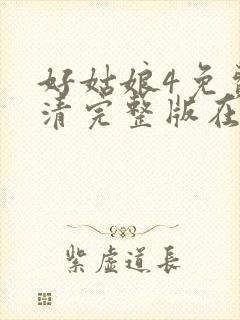 好姑娘4免费
清完整版在
紫虚道长